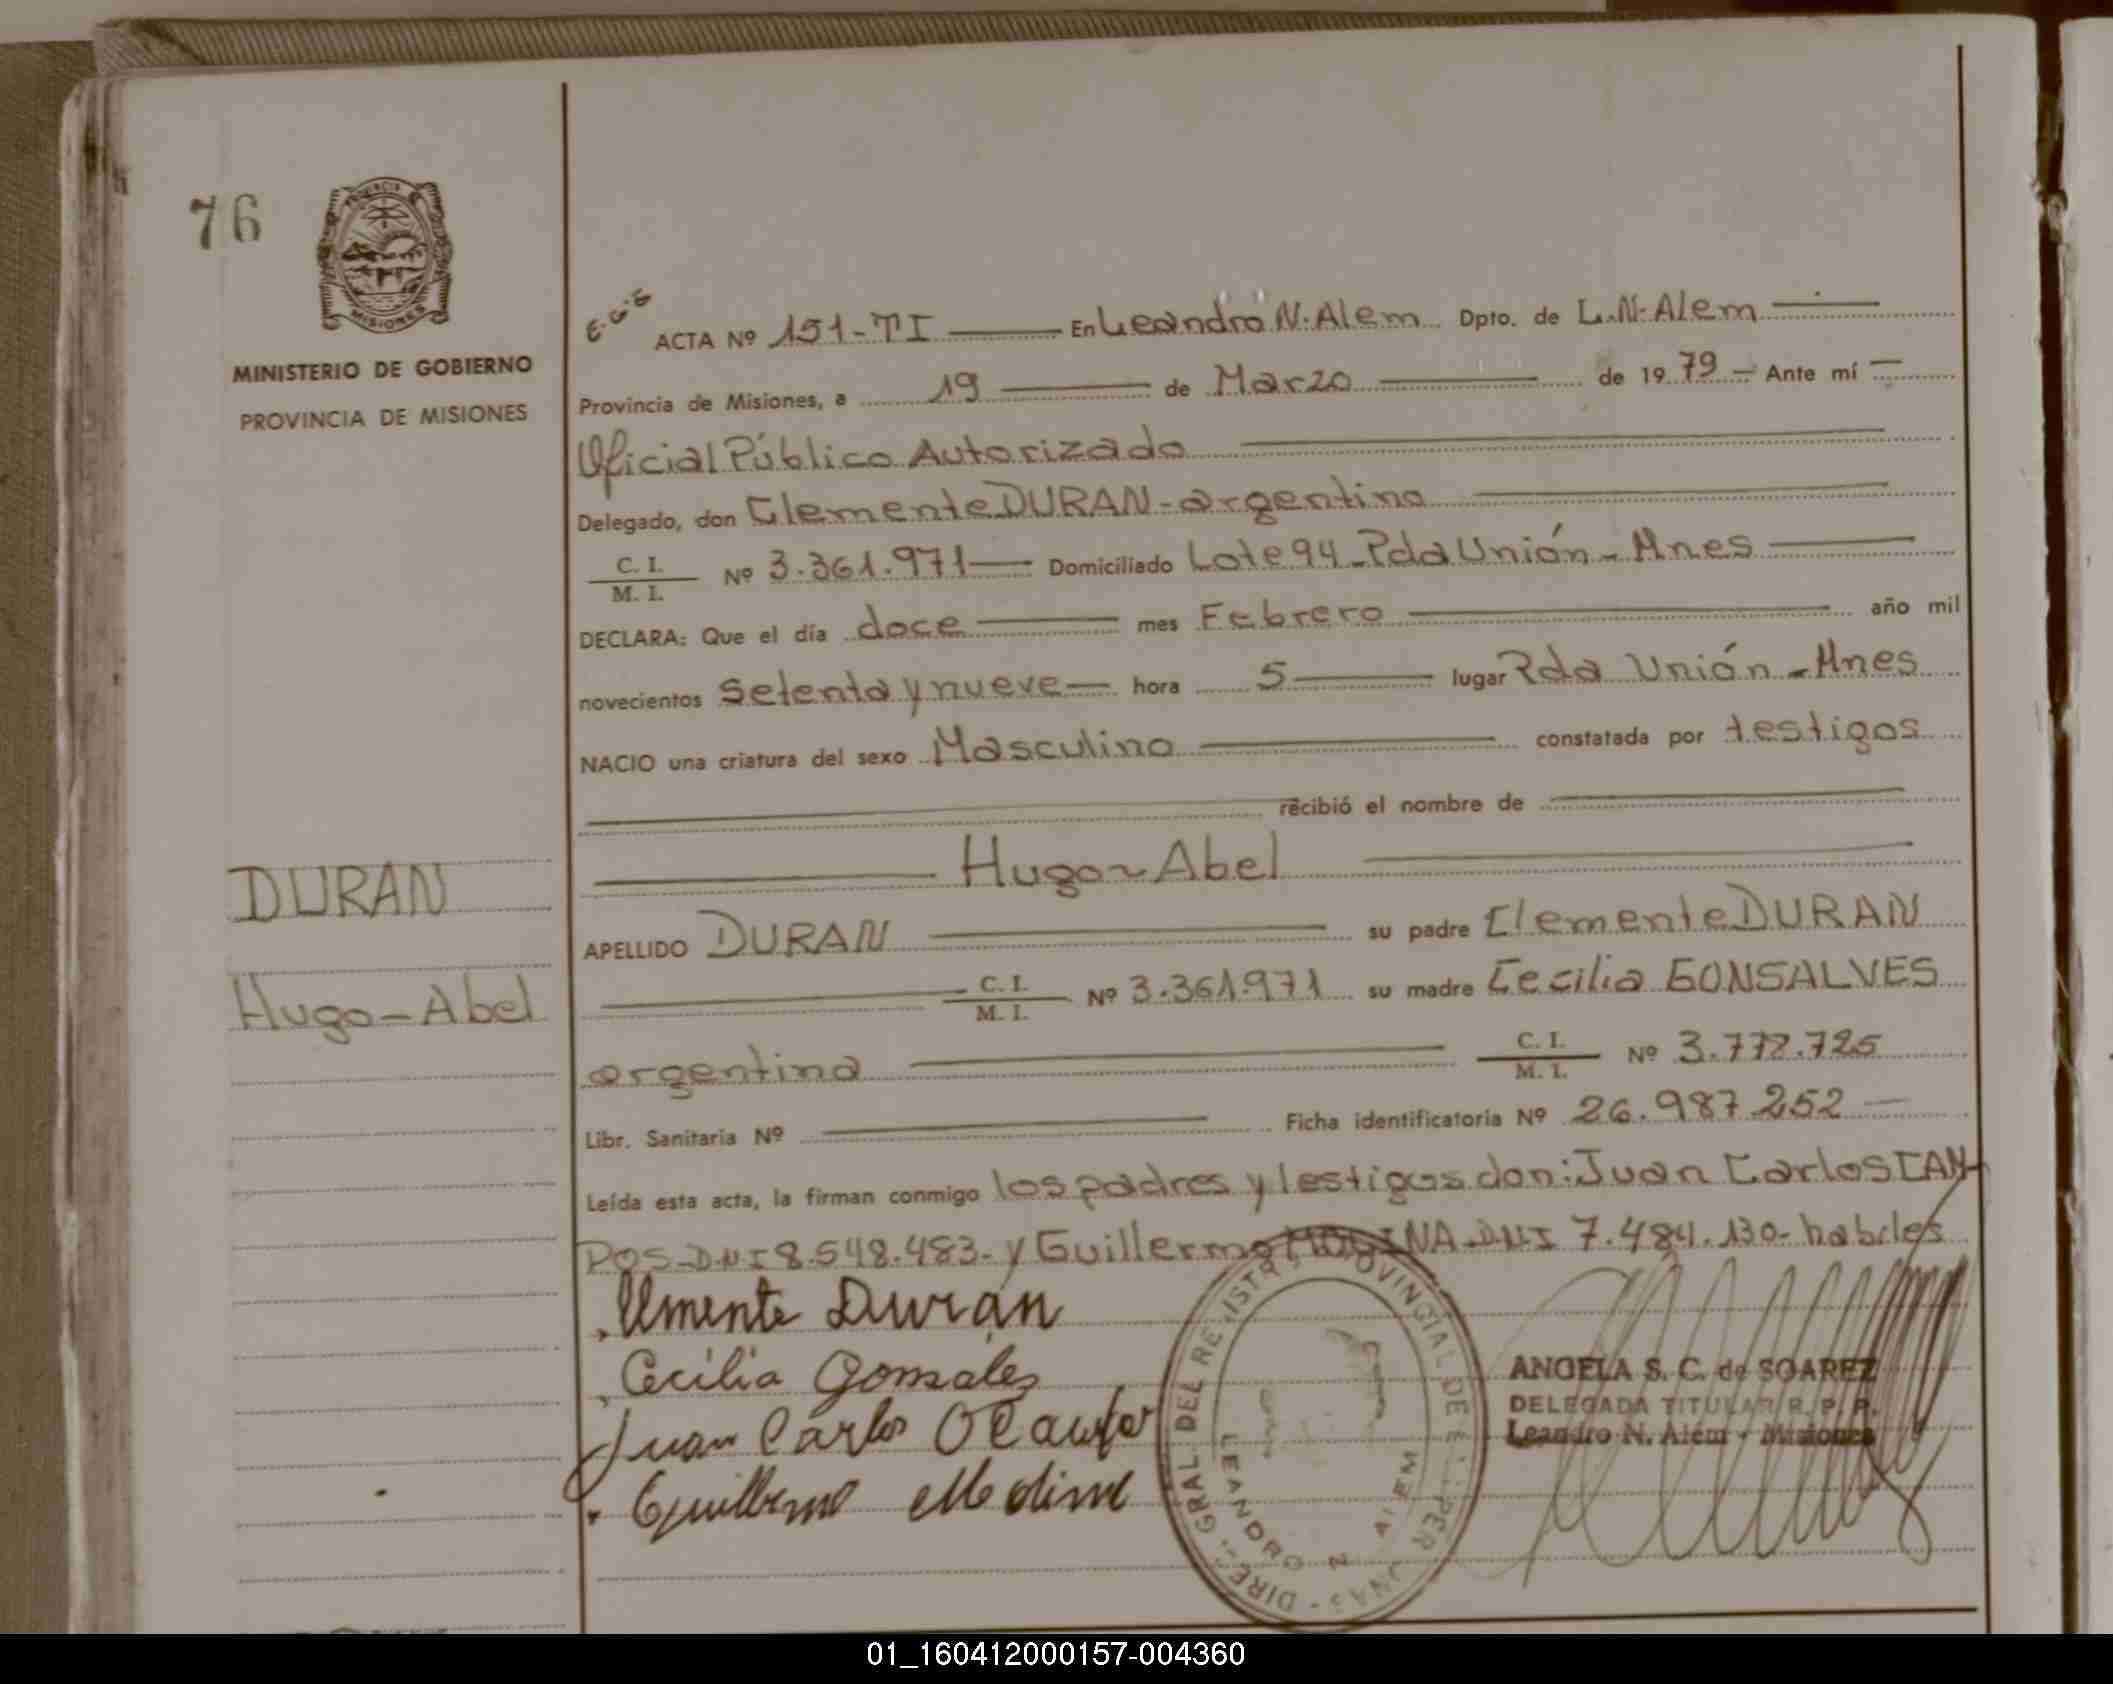 76
PROVINCIA
MISIONES
MINISTERIO DE GOBIERNO
PROVINCIA DE MISIONES
E.G.G
ACTA Nº 151-TI En Leandro N. Alem Dpto. de L.N. Alem
Provincia de Misiones, a 19 de Marzo de 1979 Ante mí
Oficial Público Autorizado
Delegado, don Clemente DURAN - argentino
C. I. / M. I. Nº 3.361.971 Domiciliado Lote 94 - Pda Unión - Mnes
DECLARA: Que el día doce mes Febrero año mil
novecientos setenta y nueve hora 5 lugar Pda Unión - Mnes
NACIO una criatura del sexo Masculino constatada por testigos
recibió el nombre de
Hugo - Abel
DURAN
APELLIDO DURAN su padre Clemente DURAN
Hugo - Abel
C. I. / M. I. Nº 3.361.971 su madre Cecilia GONSALVES
argentina C. I. / M. I. Nº 3.772.725
Libr. Sanitaria Nº Ficha identificatoria Nº 26.987.252
Leída esta acta, la firman conmigo los padres y testigos don: Juan Carlos CAM-
POS - D.N.I 8.548.483 - y Guillermo MOLINA - D.N.I 7.484.130 - habiles
Clemente Durán
Cecilia Gonsales
Juan Carlos O Campo
Guillermo Molina
DIREC. GRAL DEL REGISTRO PROVINCIAL DE LAS PERSONAS
LEANDRO N. ALEM
ANGELA S. C. de SOAREZ
DELEGADA TITULAR R. P. P.
Leandro N. Além - Misiones
01_160412000157-004360